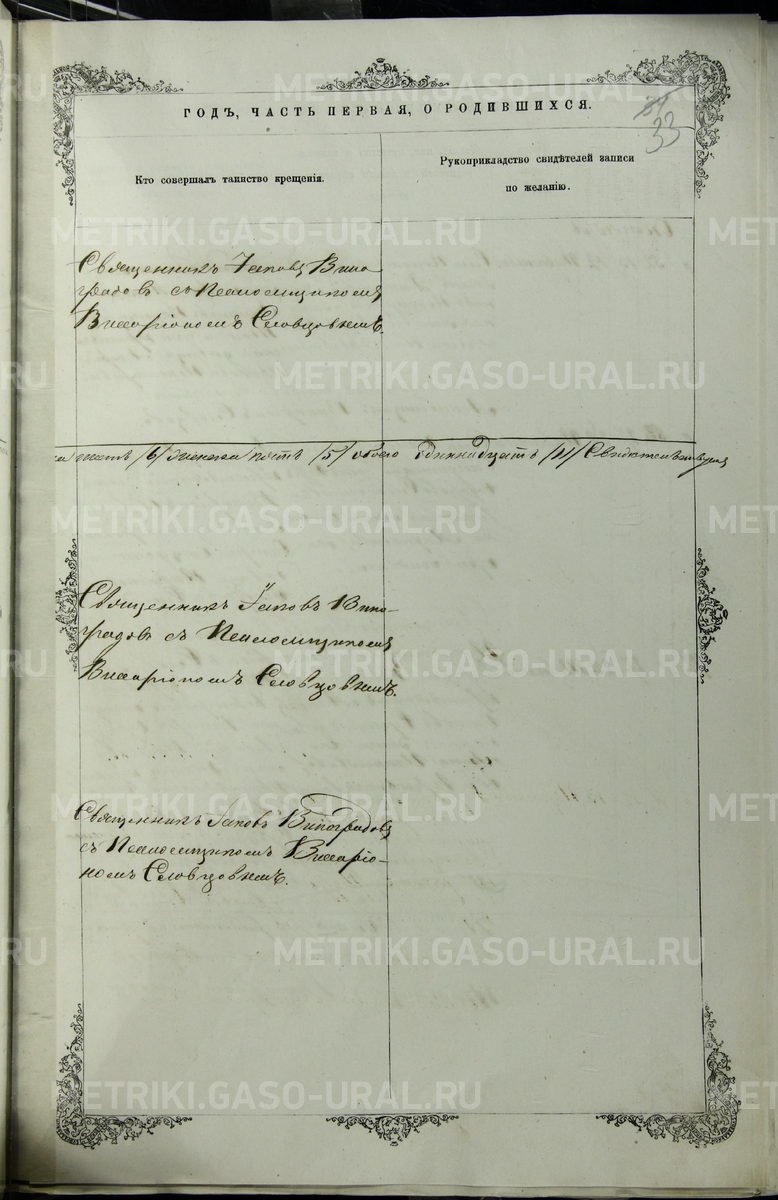 ГОДЪ, ЧАСТЬ ПЕРВАЯ, О РОДИВШИХСЯ.
33
Кто совершалъ таинство крещенія.
Рукоприкладство свидѣтелей записи
по желанію.
Священникъ Іаковъ Вино-
градовъ съ Псаломщикомъ
Виссаріономъ Словцовымъ.
шесть /6/ женска пять /5/ обоего одиннадцать /11/ Свидѣтельствуемъ
Священникъ Іаковъ Вино-
градовъ съ Псаломщикомъ
Виссаріономъ Словцовымъ.
Священникъ Іаковъ Виноградовъ
съ Псаломщикомъ Виссаріо-
номъ Словцовымъ.
METRIKI.GASO-URAL.RU